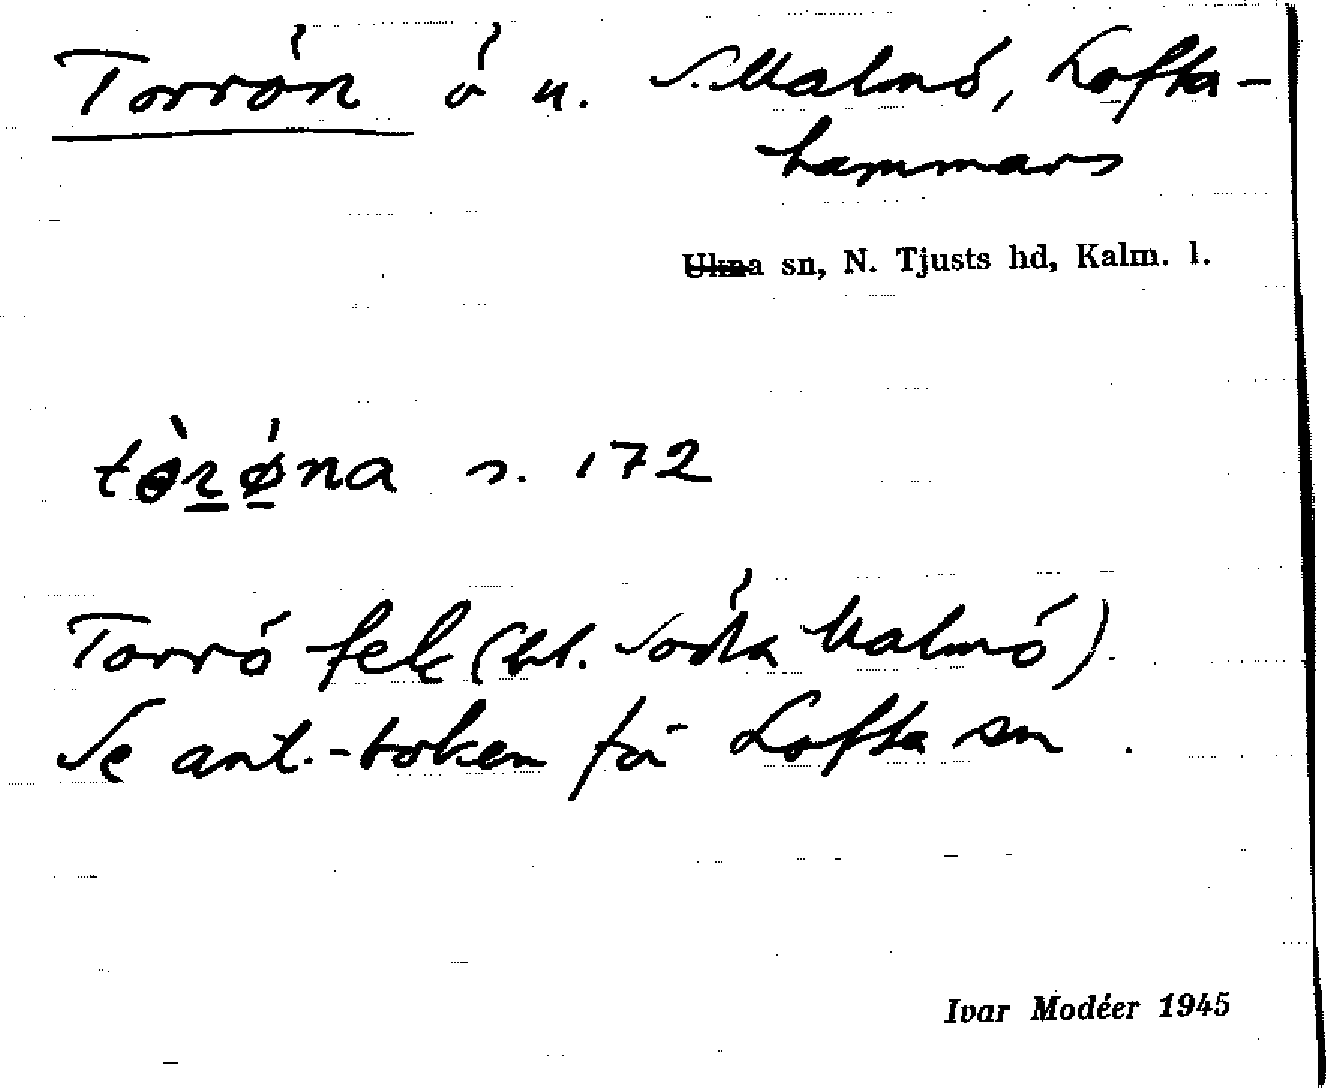 Torrön ö u. S. Malmö, Lofta-
hammars
Ukna sn, N. Tjusts hd, Kalm. l.
tòrø̀na s. 172
Torrö fek (bl. Södra Malmö).
Se ant.-boken för Lofta sn.
Ivar Modéer 1945